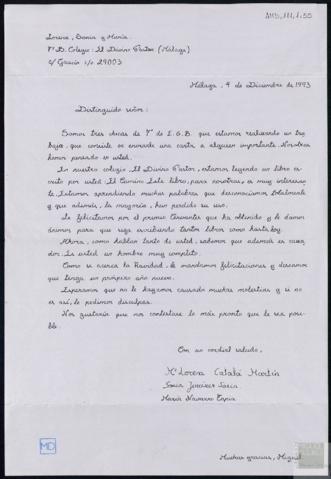 Lorena, Sonia y María.
7º B. Colegio: El Divino Pastor (Málaga)
c/ Gaucín s/n 29003
Málaga, 4 de Diciembre de 1993
Distinguido señor:
Somos tres chicas de 7º de E.G.B. que estamos realizando un tra
bajo, que consiste en enviarle una carta a alguien importante. Nosotras
hemos pensado en usted.
En nuestro colegio El Divino Pastor, estamos leyendo un libro es
crito por usted: El Camino. Este libro, para nosotras, es muy interesan
te. Estamos aprendiendo muchas palabras que desconocíamos totalmente
y que además, la mayoría, han perdido su uso.
Le felicitamos por el premio Cervantes que ha obtenido y le damos
ánimos para que siga escribiendo tantos libros como hasta hoy.
Ahora, como hablan tanto de usted, sabemos que además es caza
dor. Es usted un hombre muy completo.
Como se acerca la Navidad, le mandamos felicitaciones y deseamos
que tenga un próspero año nuevo.
Esperamos que no le hayamos causado muchas molestias y si no
es así, le pedimos disculpas.
Nos gustaría que nos contestase lo más pronto que le sea posi
ble.
Con un cordial saludo,
Mª Lorena Catalá Martín
Sonia Jiménez
María Navarro Tapia
MD
Muchas gracias, Miguel.
AMD,111,1,55